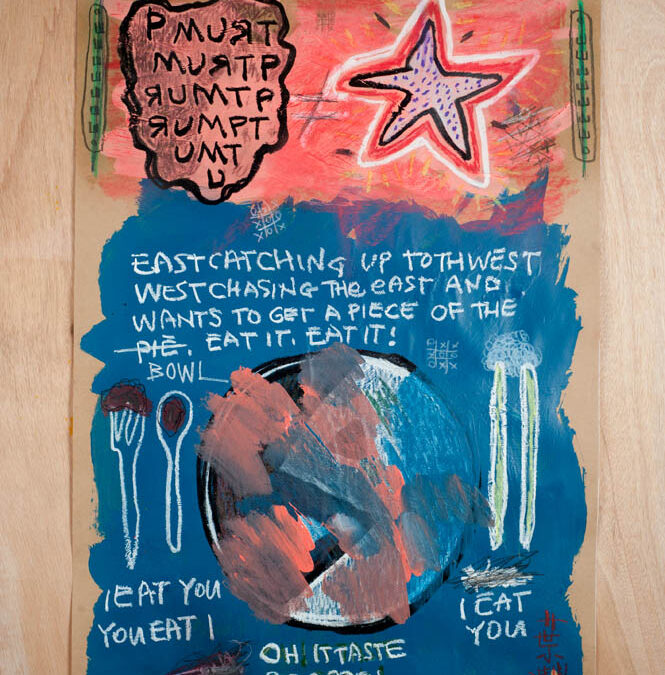 P MUЯT
MUЯTP
ЯUMTP
ЯUMPT
UMT
U
EAST CATCHING UP TOTH WEST
WEST CHASING THE EAST AND
WANTS TO GET A PIECE OF THE
PIE. EAT IT. EAT IT!
BOWL
I EAT YOU
YOU EAT I
I EAT
YOU
OH! IT TASTE